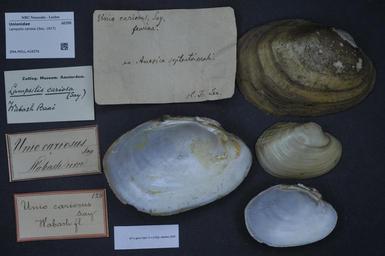 NBC Naturalis - Leiden
Unionidae
Lampsilis cariosa (Say, 1817)
ZMA.MOLL.418276
Unio cariosus, Say.
femina.
ex America septentrionali
Zoölog. Museum. Amsterdam.
Lampsilis cariosa
(Say)
Wabash River
Unio cariosus
Say
Wabash river
Unio cariosus
Say
Wabash fl.